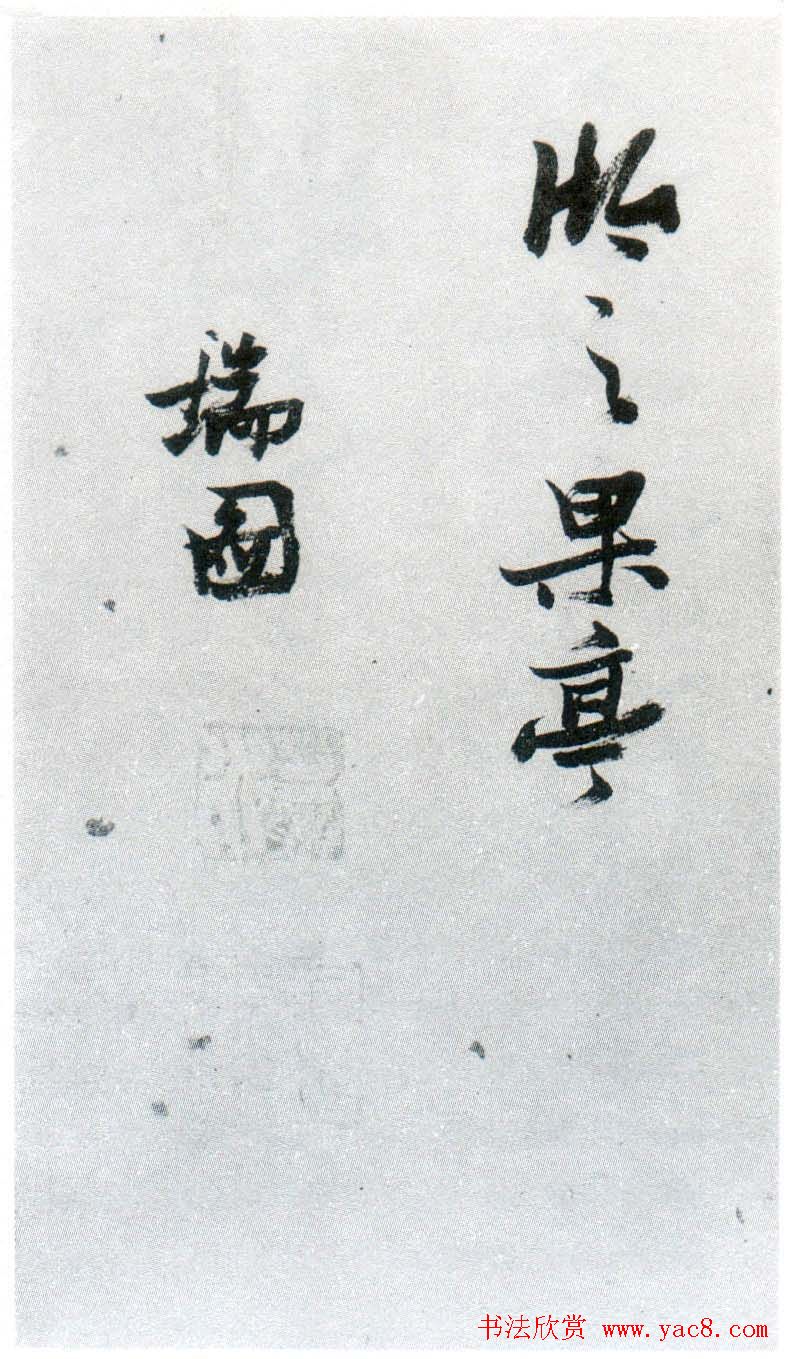 之果亭
瑞图
书法欣赏 www.yac8.com